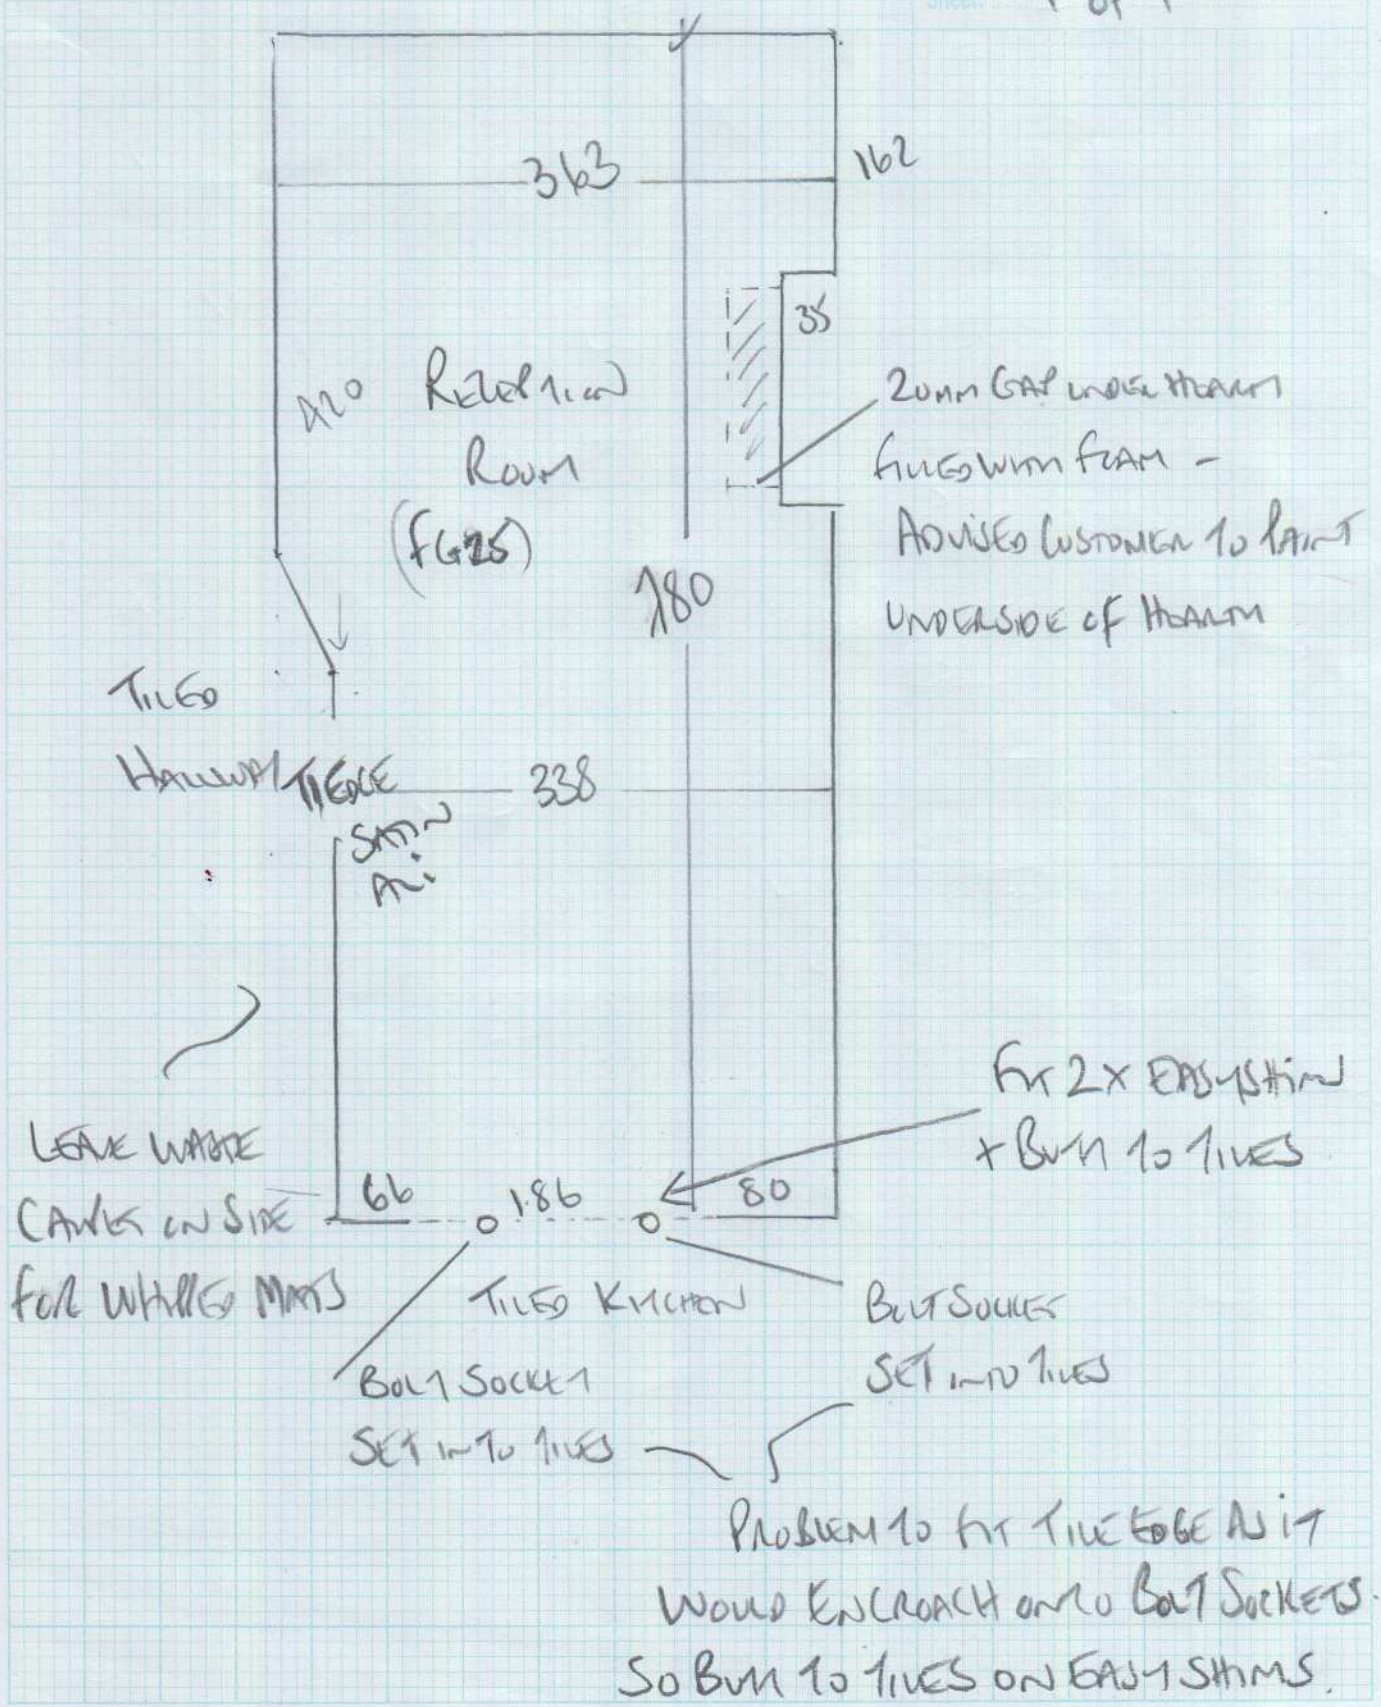 Sheet: 1 of 1
363
162
35
420
RECEPTION
ROOM
(FG25)
20MM GAP UNDER HEARTH
FILLED WITH FOAM -
ADVISED CUSTOMER TO PAINT
UNDERSIDE OF HEARTH
780
TILED
HALLWAY
338
SATIN
ALI
FIT 2X EASYSHIM
+ BUTT TO TILES
LEAVE WASTE
CARPET ON SIDE
FOR WHIPPED MATS
66
186
80
TILED KITCHEN
BOLT SOCKET
SET INTO TILES
BOLT SOCKET
SET INTO TILES
PROBLEM TO FIT TILE EDGE AS IT
WOULD ENCROACH ONTO BOLT SOCKETS.
SO BUTT TO TILES ON EASYSHIMS.